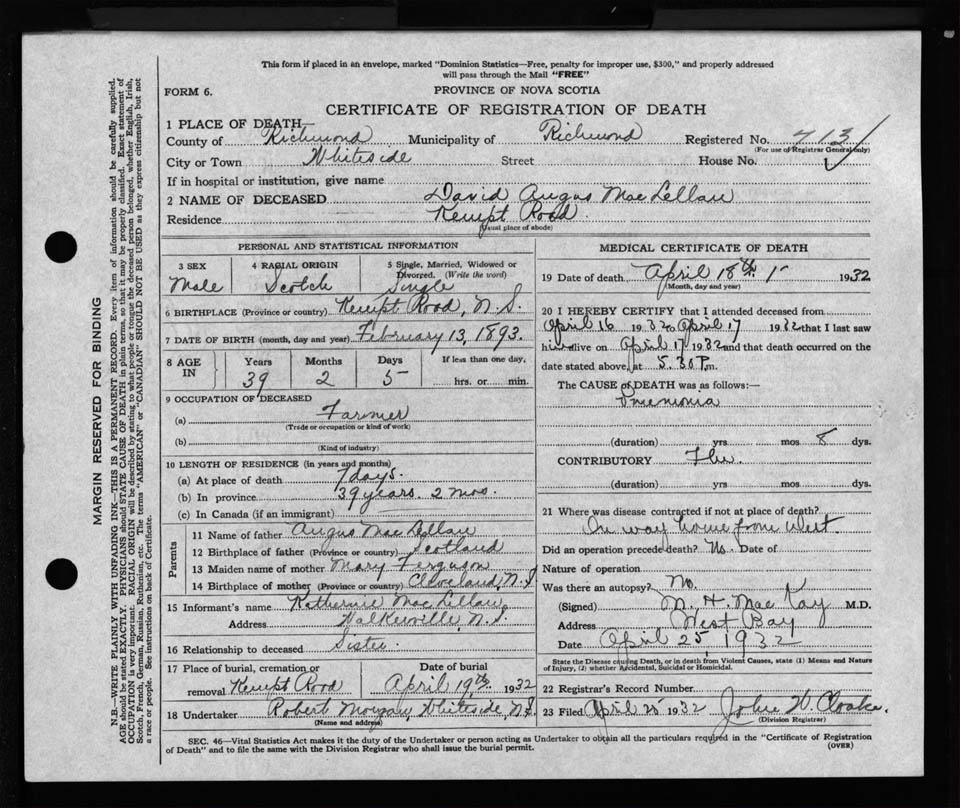 This form if placed in an envelope, marked "Dominion Statistics—Free, penalty for improper use, $300," and properly addressed
will pass through the Mail "FREE"
FORM 6.
PROVINCE OF NOVA SCOTIA
CERTIFICATE OF REGISTRATION OF DEATH
1 PLACE OF DEATH—
County of Richmond Municipality of Richmond Registered No. 713
(For use of Registrar General only)
City or Town Whiteside Street House No.
If in hospital or institution, give name
2 NAME OF DECEASED David Angus MacLellan
Residence Kempt Road
(Usual place of abode)
PERSONAL AND STATISTICAL INFORMATION
3 SEX 4 RACIAL ORIGIN 5 Single, Married, Widowed or Divorced. (Write the word)
Male Scotch Single
6 BIRTHPLACE (Province or country) Kempt Road, N.S.
7 DATE OF BIRTH (month, day and year) February 13, 1893.
8 AGE IN Years Months Days If less than one day,
39 2 5 hrs. or min.
9 OCCUPATION OF DECEASED
(a) Farmer
(Trade or occupation or kind of work)
(b)
(Kind of industry)
10 LENGTH OF RESIDENCE (in years and months)
(a) At place of death 7 days.
(b) In province 39 years. 2 mos.
(c) In Canada (if an immigrant)
Parents
11 Name of father Angus MacLellan
12 Birthplace of father (Province or country) Scotland
13 Maiden name of mother Mary Ferguson
14 Birthplace of mother (Province or country) Cleveland, N.S
15 Informant's name Katherine MacLellan
Address Walkerville, N.S.
16 Relationship to deceased Sister.
17 Place of burial, cremation or removal Kempt Road
Date of burial April 19th. 1932
18 Undertaker Robert Morgan, Whiteside, N.S.
(Name and address)
MEDICAL CERTIFICATE OF DEATH
19 Date of death April 18th. 1932
(Month, day and year)
20 I HEREBY CERTIFY that I attended deceased from
April 16 1932 to April 17 1932 that I last saw
him alive on April 17 1932 and that death occurred on the
date stated above, at 5.30 P.m.
The CAUSE of DEATH was as follows:—
Pneumonia
(duration) yrs mos 8 dys.
CONTRIBUTORY Flu.
(duration) yrs. mos. dys.
21 Where was disease contracted if not at place of death?
On way home from West
Did an operation precede death? No. Date of
Nature of operation
Was there an autopsy? No.
(Signed) M. H. MacKay M.D.
Address West Bay
Date April 25, 1932
State the Disease causing Death, or in death from Violent Causes, state (1) Means and Nature
of Injury, (2) whether Accidental, Suicidal or Homicidal.
22 Registrar's Record Number
23 Filed April 25 1932 John W.
(Division Registrar)
SEC. 46—Vital Statistics Act makes it the duty of the Undertaker or person acting as Undertaker to obtain all the particulars required in the "Certificate of Registration
of Death" and to file the same with the Division Registrar who shall issue the burial permit.
(OVER)
MARGIN RESERVED FOR BINDING
N.B.—WRITE PLAINLY WITH UNFADING INK—THIS IS A PERMANENT RECORD. Every item of information should be carefully supplied.
AGE should be stated EXACTLY. PHYSICIANS should STATE CAUSE OF DEATH in plain terms, so that it may be properly classified. Exact statement of
OCCUPATION is very important. RACIAL ORIGIN will be described by stating to what people or tongue the deceased person belonged, whether English, Irish,
Scotch, French, German, Russian, Ruthenian, etc. The terms "AMERICAN" or "CANADIAN" SHOULD NOT BE USED as they express citizenship but not
a race or people. See instructions on back of Certificate.